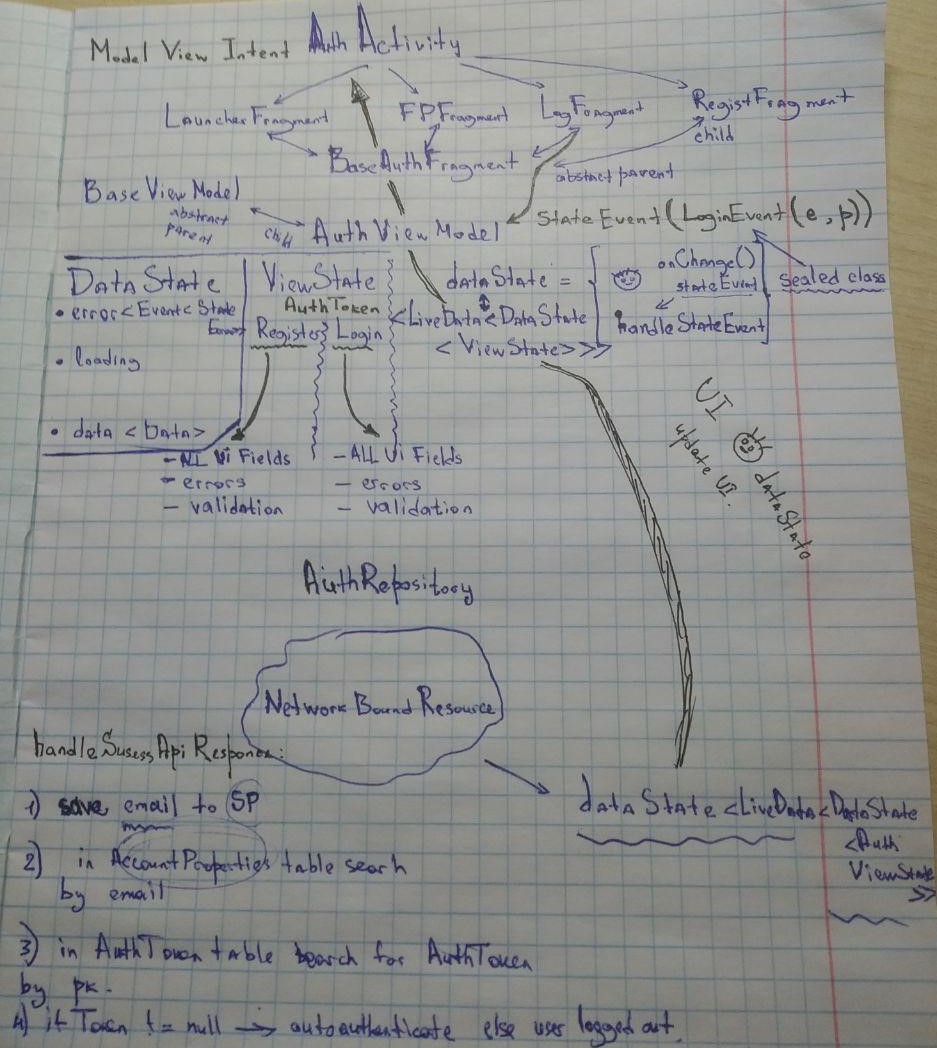 Model View Intent Auth Activity
LauncherFragment FPFragment LogFragment RegistFragment
child
BaseAuthFragment
abstract parent
BaseViewModel
abstract
parent
child AuthViewModel
StateEvent(LoginEvent(e,p))
DataState
• error<Event<State
• loading
• data <Data>
ViewState
AuthToken
Register} Login
- ALL Ui Fields
- errors
- validation
- ALL Ui Fields
- errors
- validation
dataState =
<LiveData<DataState
<ViewState>>>
onChange()
stateEvent
handleStateEvent
sealed class
UI
update UI.
dataState
AuthRepository
Network Bound Resource
handleSusessApiResponce:
1) save email to SP
2) in AccountProperties table search
by email
3) in AuthToken table search for AuthToken
by pk.
4) if Token != null → autoauthenticate else user logged out.
dataState<LiveData<DataState
<Auth
ViewState
>>